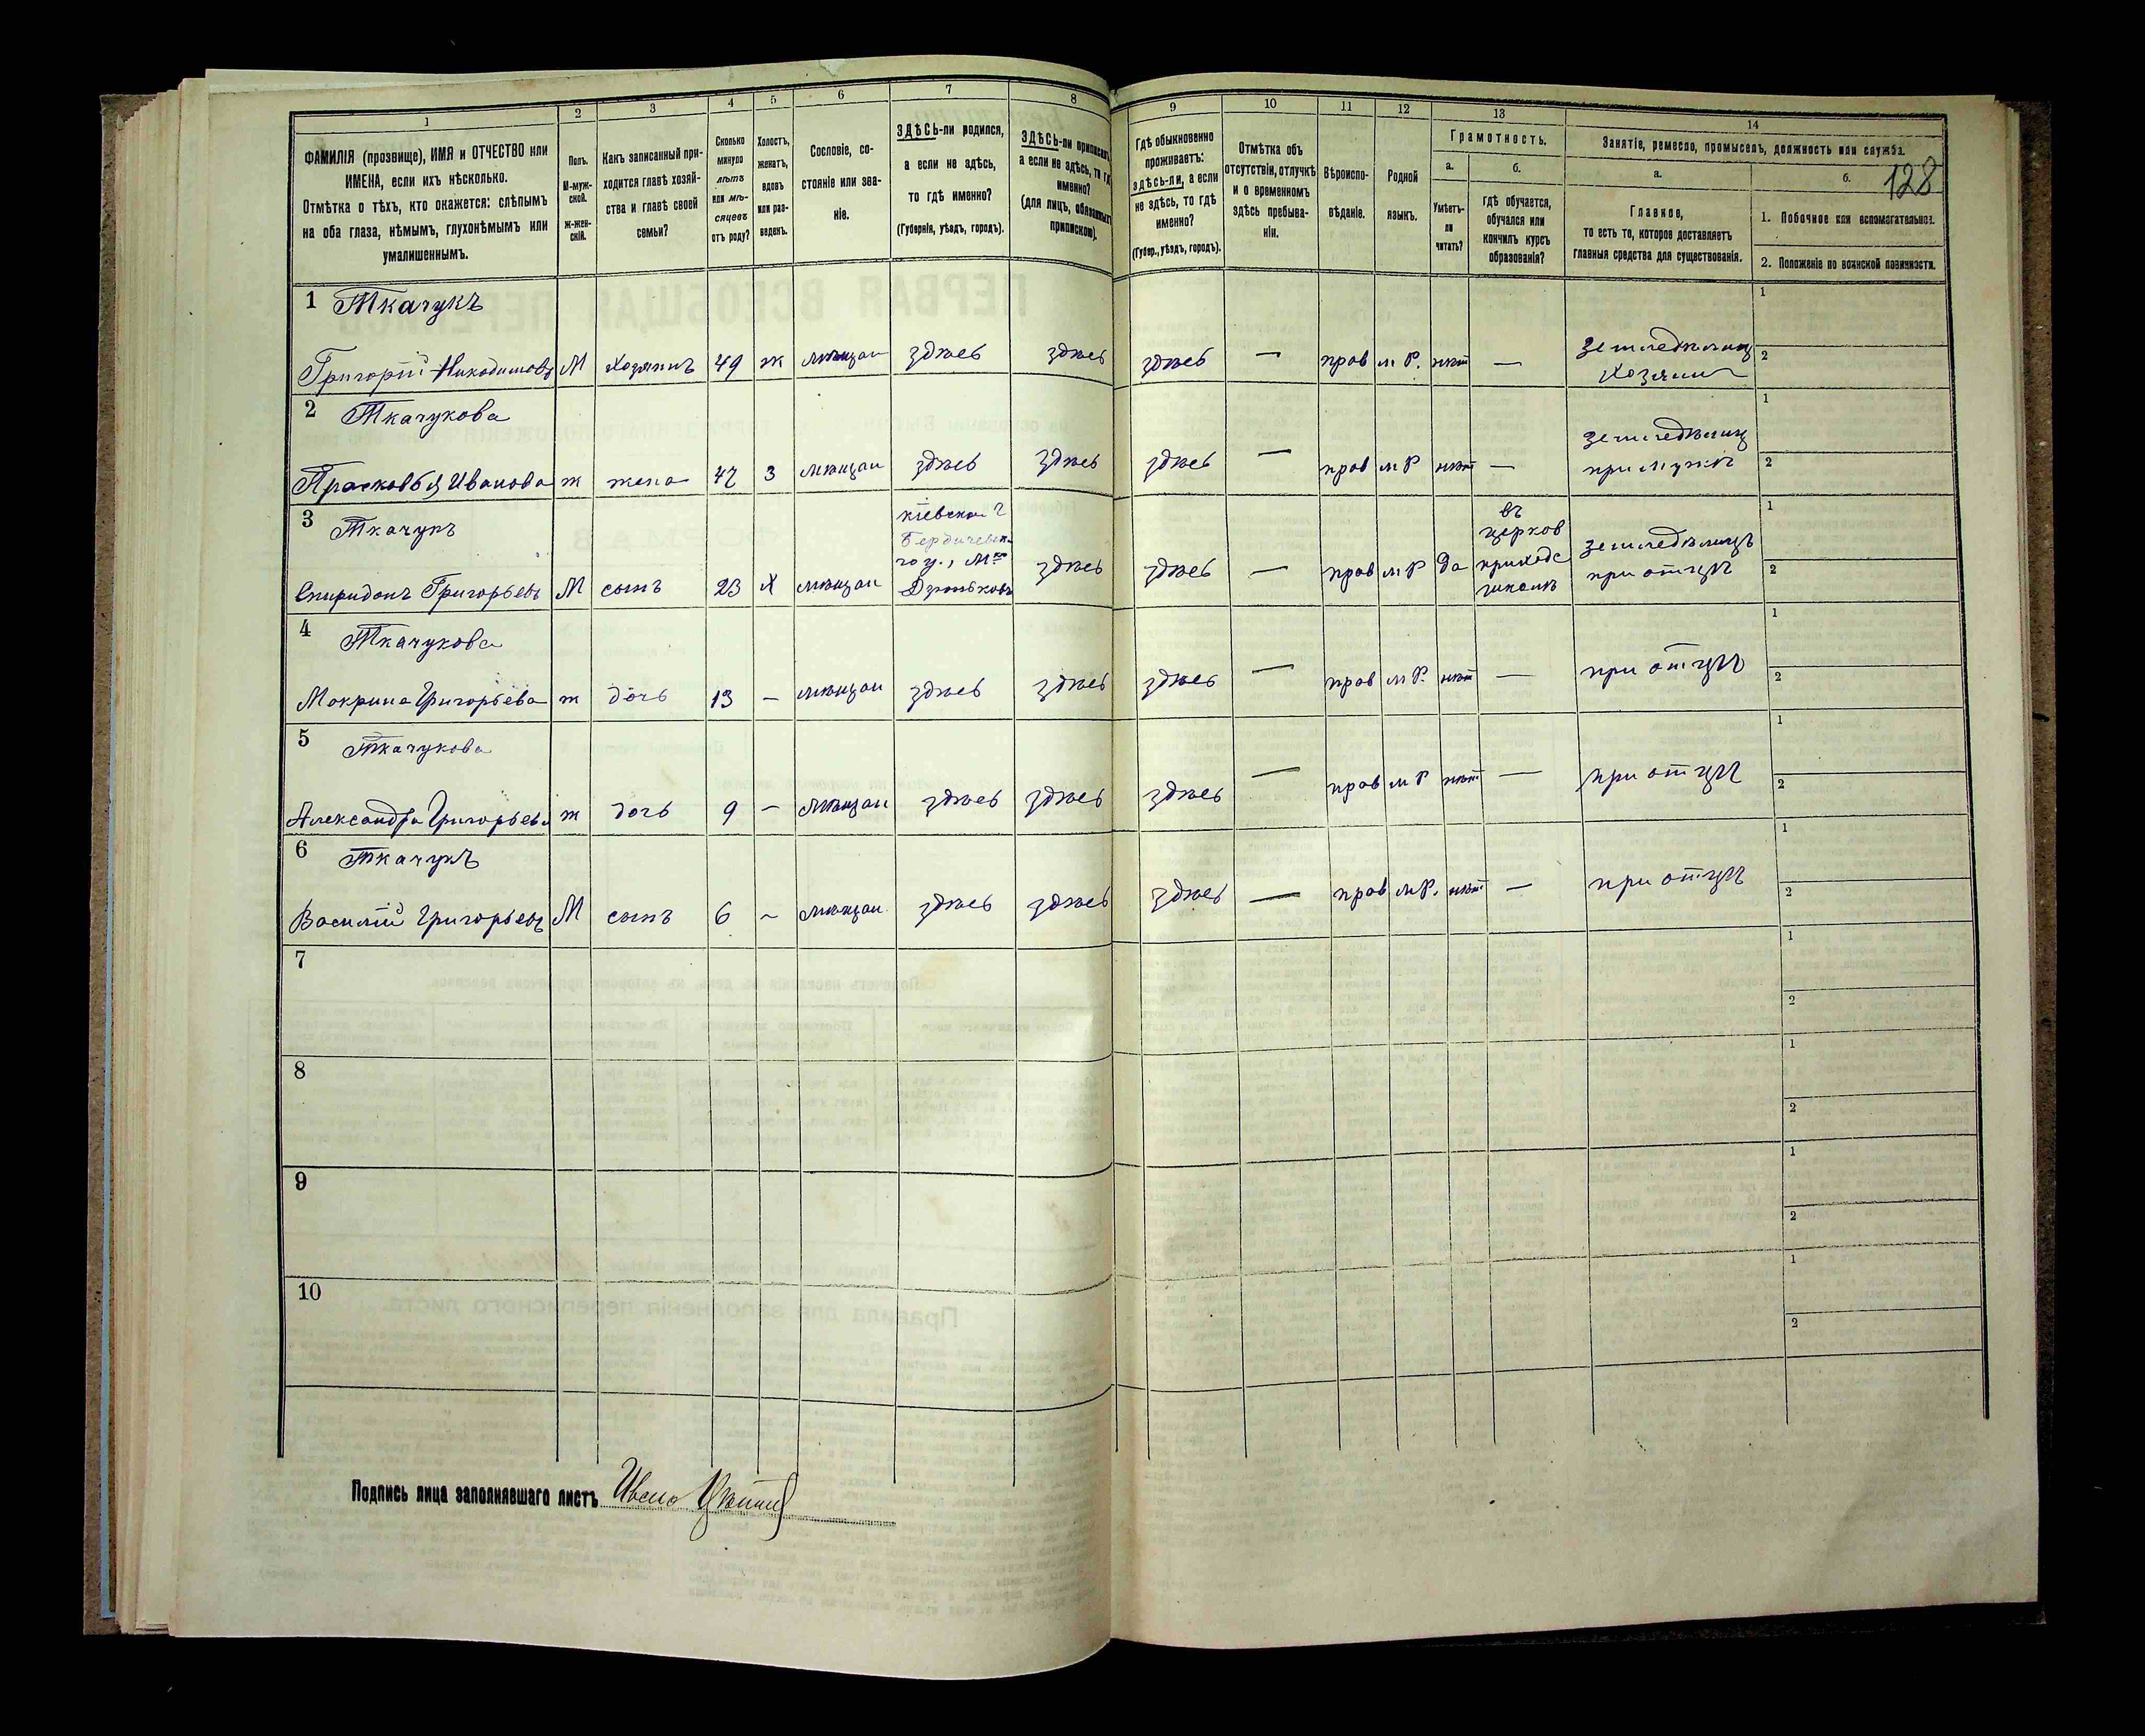 1 2 3 4 5 6 7 8 9 10 11 12 13 14
ФАМИЛІЯ (прозвище), ИМЯ и ОТЧЕСТВО или
ИМЕНА, если ихъ нѣсколько.
Отмѣтка о тѣхъ, кто окажется: слѣпымъ
на оба глаза, нѣмымъ, глухонѣмымъ или
умалишеннымъ.
Полъ.
М-муж-
ской.
Ж-жен-
скій.
Какъ записанный при-
ходится главѣ хозяй-
ства и главѣ своей
семьи?
Сколько
минуло
лѣтъ
или мѣ-
сяцевъ
отъ роду?
Холостъ,
женатъ,
вдовъ
или раз-
веденъ.
Сословіе, со-
стояніе или зва-
ніе.
ЗДѢСЬ-ли родился,
а если не здѣсь,
то гдѣ именно?
(Губернія, уѣздъ, городъ).
ЗДѢСЬ-ли приписанъ,
а если не здѣсь, то гдѣ
именно?
(для лицъ, обязанныхъ
припискою).
Гдѣ обыкновенно
проживаетъ:
здѣсь-ли, а если
не здѣсь, то гдѣ
именно?
(Губер., уѣздъ, городъ).
Отмѣтка объ
отсутствіи, отлучкѣ
и о временномъ
здѣсь пребыва-
ніи.
Вѣроиспо-
вѣданіе.
Родной
языкъ.
Грамотность.
а.
Умѣетъ-
ли
читать?
б.
гдѣ обучается,
обучался или
кончилъ курсъ
образованія?
Занятіе, ремесло, промыселъ, должность или служба.
а.
Главное,
то есть то, которое доставляетъ
главныя средства для существованія.
б.
128
1. Побочное или вспомогательное.
2. Положеніе по воинской повинности.
1 Ткачукъ
1
Григорій Никодимовъ М Хозяинъ 49 ж мѣщан здѣсь здѣсь здѣсь — прав м Р. нѣт — земледѣлец 2
Хозяин
2 Ткачукова
1
Прасковья Иванова ж жена 47 З мѣщан здѣсь здѣсь здѣсь — прав м Р нѣт — земледѣлец
при мужѣ 2
3 Ткачукъ
1
Спиридонъ Григорьевъ М сынъ 23 Х мѣщан
кіевской г
Бердичевск
го у., М
здѣсь здѣсь — прав м Р да
въ
церков
приходс
школѣ
земледѣлецъ
при отцѣ 2
4 Ткачукова
1
Мокрина Григорьева ж дочь 13 — мѣщан здѣсь здѣсь здѣсь — прав м Р. нѣт — при отцѣ 2
5 Ткачукова
1
Александра Григорьева ж дочь 9 — мѣщан здѣсь здѣсь здѣсь — прав м Р нѣт — при отцѣ 2
6 Ткачукъ
1
Василій Григорьевъ М сынъ 6 — мѣщан здѣсь здѣсь здѣсь — прав м Р. нѣт — при отцѣ 2
7
1
2
8
1
2
9
1
2
10
1
2
Подпись лица заполнявшаго листъ